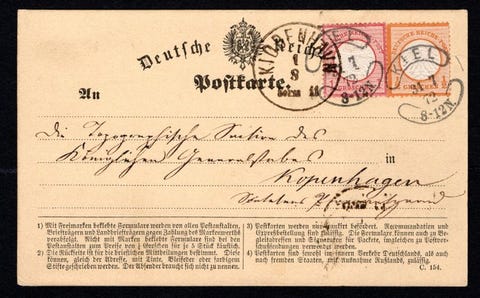 Deutsche Reichs
Postkarte.
KJØBENHAVN
1
8
KIEL
1
72
8-12N.
KIEL
72
8-12N.
An
Die Topographische Section des
Königlichen Generalstabes
in
Kopenhagen
1) Mit Freimarken beklebte Formulare werden von allen Postanstalten,
Briefträgern und Landbriefträgern gegen Zahlung des Markenwerths
verabfolgt. Nicht mit Marken beklebte Formulare sind bei den
Postanstalten zum Preise von ½ Groschen für je 5 Stück käuflich.
2) Die Rückseite ist für die brieflichen Mittheilungen bestimmt. Diese
können, gleich der Adresse, mit Tinte, Bleifeder oder farbigem
Stifte geschrieben werden. Der Absender braucht sich nicht zu nennen.
3) Postkarten werden nur frankirt befördert. Recommandation und
Expreßbestellung sind zulässig. Die Formulare können auch zu Be-
gleitadressen und Signaturen für Packete, imgleichen zu Postvor-
schußsendungen verwendet werden.
4) Postkarten sind sowohl im innern Verkehr Deutschlands, als auch
nach fremden Staaten, mit Ausnahme Rußlands, zulässig.
C. 154.